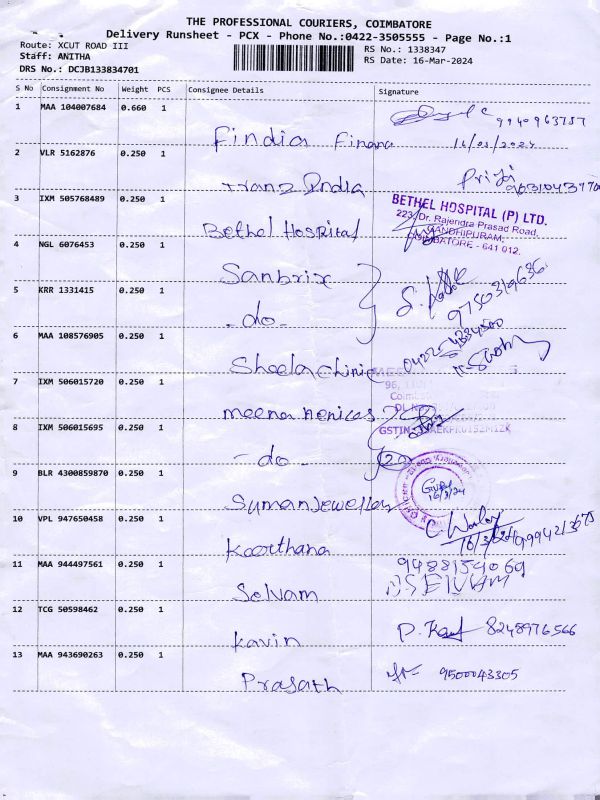 THE PROFESSIONAL COURIERS, COIMBATORE
Delivery Runsheet - PCX - Phone No.:0422-3505555 - Page No.:1
Route: XCUT ROAD III
RS No.: 1338347
Staff: ANITHA
RS Date: 16-Mar-2024
DRS No.: DCJB133834701
S No Consignment No Weight PCS Consignee Details Signature
1 MAA 104007684 0.660 1
Findia Finance 9940963757
16/03/2024
2 VLR 5162876 0.250 1
Tranz India Priya
3 IXM 505768489 0.250 1
BETHEL HOSPITAL (P) LTD.
223, Dr. Rajendra Prasad Road,
GANDHIPURAM,
COIMBATORE - 641 012.
Bethel Hospital
4 NGL 6076453 0.250 1
Sanbrix
5 KRR 1331415 0.250 1
-do-
6 MAA 108576905 0.250 1
Sheela Clinic
7 IXM 506015720 0.250 1
96,
meena
8 IXM 506015695 0.250 1
GSTIN
-do-
9 BLR 4300859870 0.250 1
Suman Jewellery
16/3/24
10 VPL 947650458 0.250 1
Keerthana 16/3/24
11 MAA 944497561 0.250 1
9488154069
Selvam N SELVAM
12 TCG 50598462 0.250 1
Kavin 8248976566
13 MAA 943690263 0.250 1
Prasath 9500043305